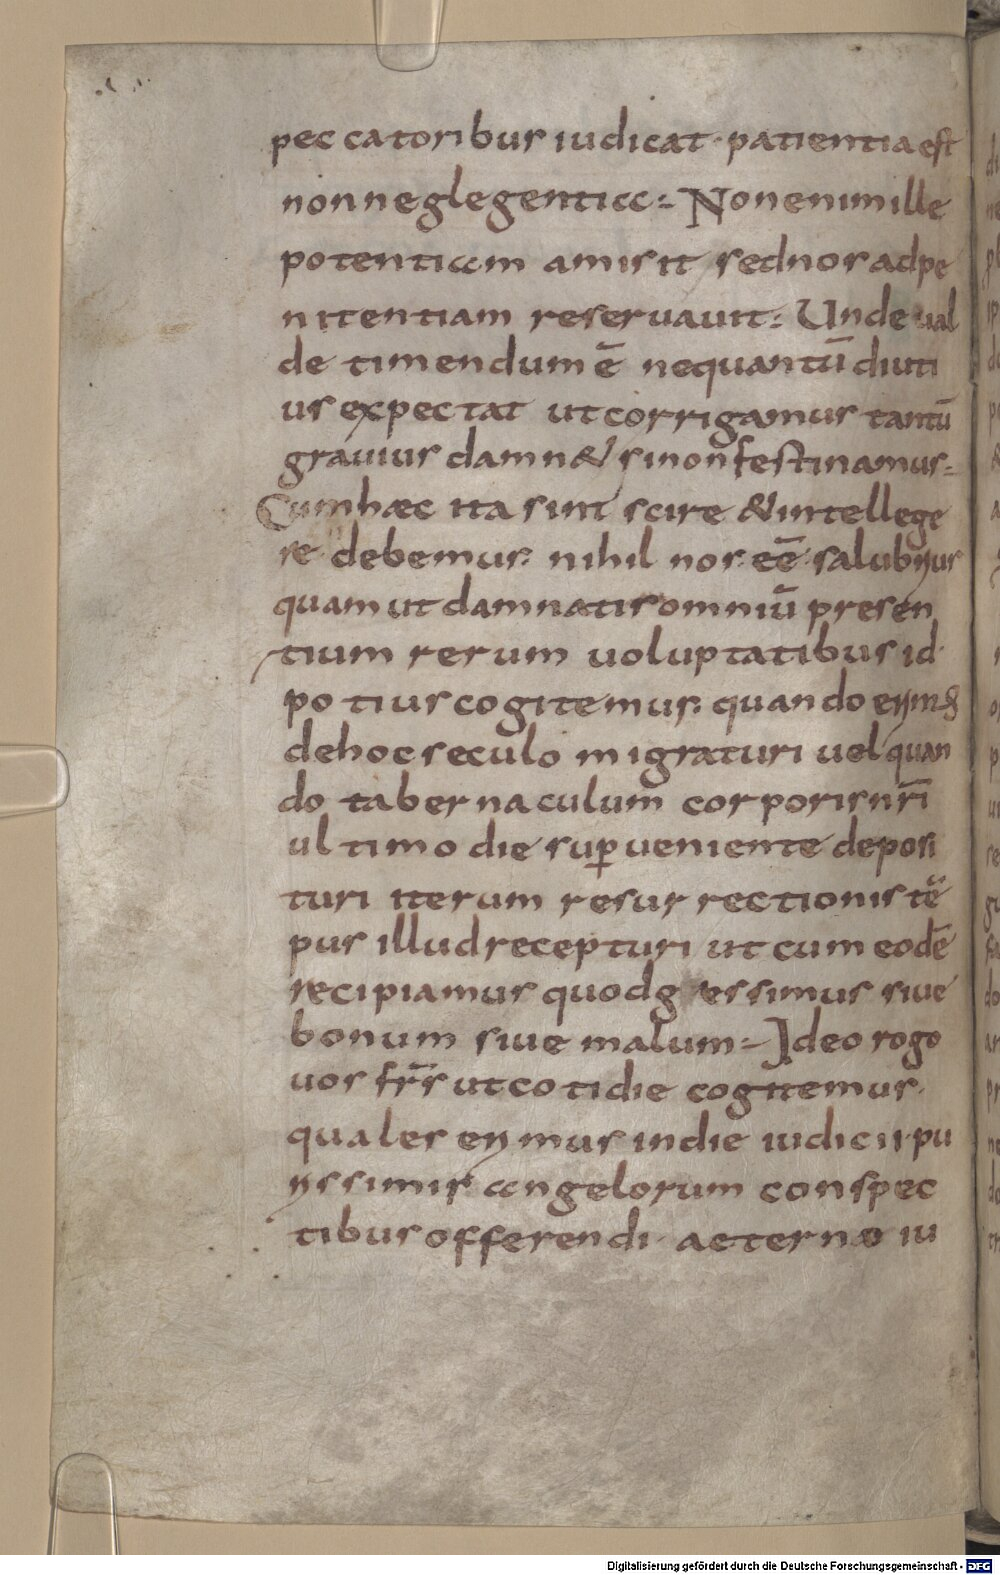 peccatoribus iudicat · patientia est
non neglegentia :- Non enim ille
potentiam amisit sed nos ad pe
nitentiam reservavit :- Unde val
de timendum ē ne quantū diuti
us expectat ut corrigamus tantū
gravius damn& si non festinamus :-
Cum haec ita sint scire & intellege
re debemus · nihil nos · eē · salubrius
quam ut damnatis omniū presen
tium rerum voluptatibus id ·
potius cogitemus · quando
de hoc seculo migraturi vel quan
do tabernaculum corporis nr̄i
ultimo die sup̱ veniente deposi
turi iterum resurrectionis tē
pus illud recepturi ut cum eodē
recipiamus quod sive
bonum sive malum :- Ideo rogo
vos fr̄s ut cotidie cogitemus ·
quales erimus in die iudicii · pu
rissimis angelorum conspec
tibus offerendi · aeterno iu
Digitalisierung gefördert durch die Deutsche Forschungsgemeinschaft - DFG